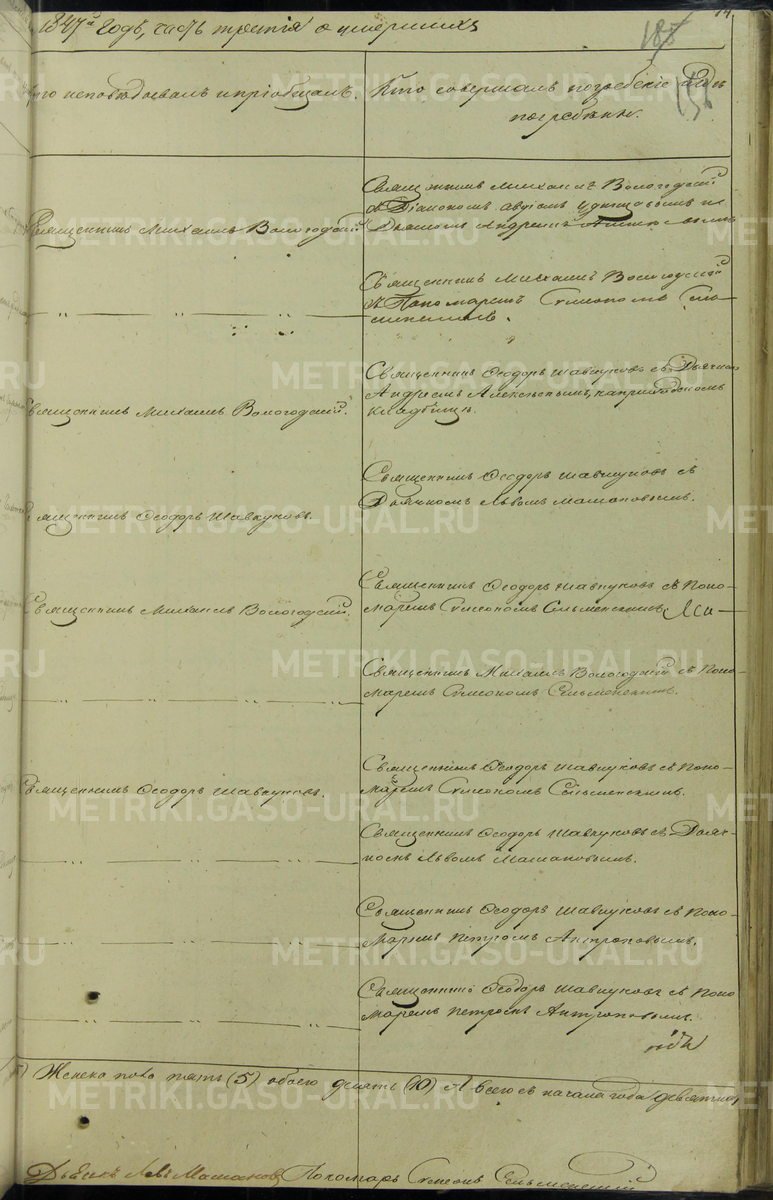 1847й Годъ, часть третія о умершихъ
74.
185
136
Кто исповѣдывалъ и пріобщалъ.
Кто совершалъ погребеніе и гдѣ
погребены.
Священникъ Михаилъ Вологодскій
Священникъ Михаилъ Вологодскій
съ Діакономъ Авдіемъ и
Дьячкомъ Андреемъ
Священникъ Михаилъ Вологодскій
съ Пономаремъ Симеономъ Сель-
менскимъ.
Священникъ Михаилъ Вологодскій.
Священникъ Ѳеодоръ Шавкуновъ съ Дьячкомъ
Андреемъ Алексѣевымъ, на приходскомъ
кладбищѣ.
Священникъ Ѳеодоръ Шавкуновъ.
Священникъ Ѳеодоръ Шавкуновъ съ
Дьячкомъ Львомъ Мамановымъ.
Священникъ Михаилъ Вологодскій.
Священникъ Ѳеодоръ Шавкуновъ съ Поно-
маремъ Симеономъ Сельменскимъ
Священникъ Михаилъ Вологодскій съ Поно-
маремъ Симеономъ Сельменскимъ.
Священникъ Ѳеодоръ Шавкуновъ.
Священникъ Ѳеодоръ Шавкуновъ съ Поно-
маремъ Симеономъ Сельменскимъ.
Священникъ Ѳеодоръ Шавкуновъ съ Дьяч-
комъ Львомъ Мамановымъ.
Священникъ Ѳеодоръ Шавкуновъ съ Поно-
маремъ Петромъ Антроповымъ.
Священникъ Ѳеодоръ Шавкуновъ съ Поно
маремъ Петромъ Антроповымъ.
5) Женска пола пять (5) обоего десять (10) А всего съ начала года
Дьячекъ Левъ Мамановъ Пономарь Симеонъ Сельменскій
METRIKI.GASO-URAL.RU